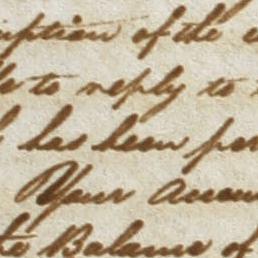 iption of the
to reply to
has been per
Your accou
te Balance of